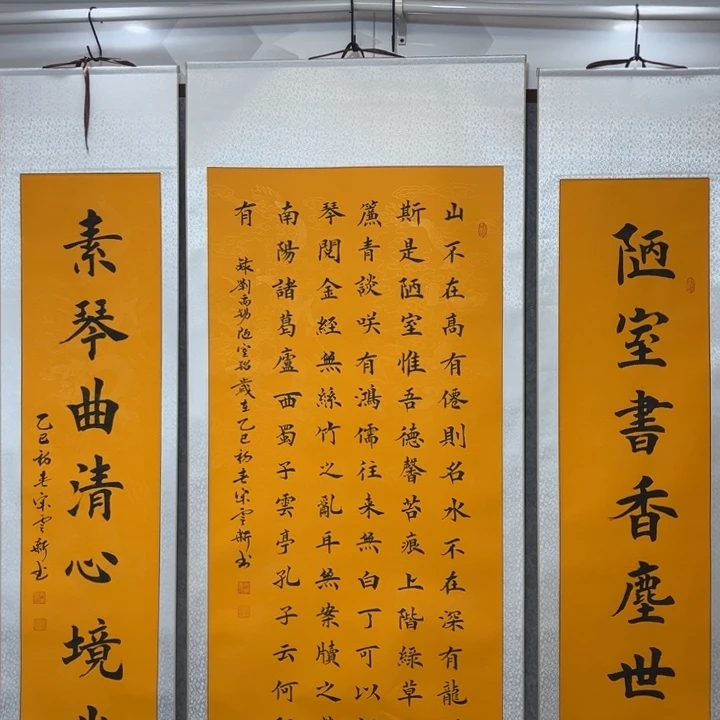 陋室書香塵世
山不在高有僊則名水不在深有龍
斯是陋室惟吾德馨苔痕上階綠草
簾青談咲有鴻儒往来無白丁可以
琴閱金經無絲竹之亂耳無案牘之
南陽諸葛廬西蜀子雲亭孔子云何
有
錄劉禹錫陋室銘歲在乙巳初春宋雲书
素琴曲清心境
乙巳初春宋雲书